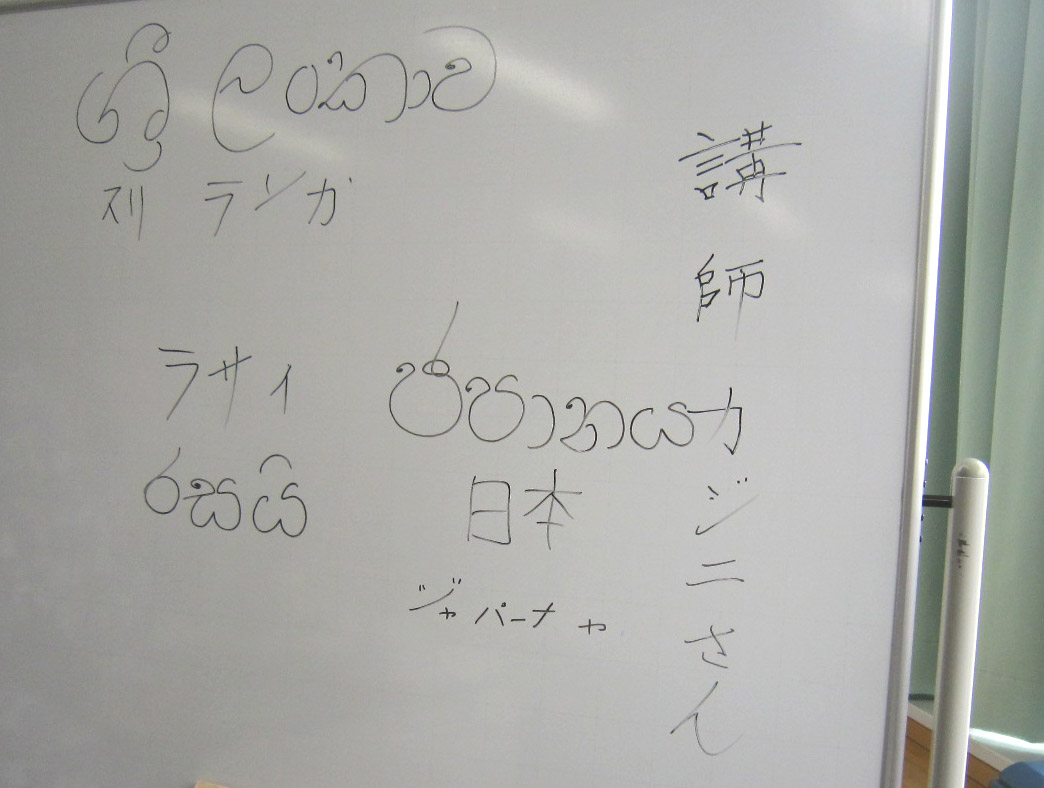 ශ්‍රී ලංකාව
スリ ランカ
講師
カジニさん
ラサイ
රසයි
ජපානය
日本
ジャパーナャ